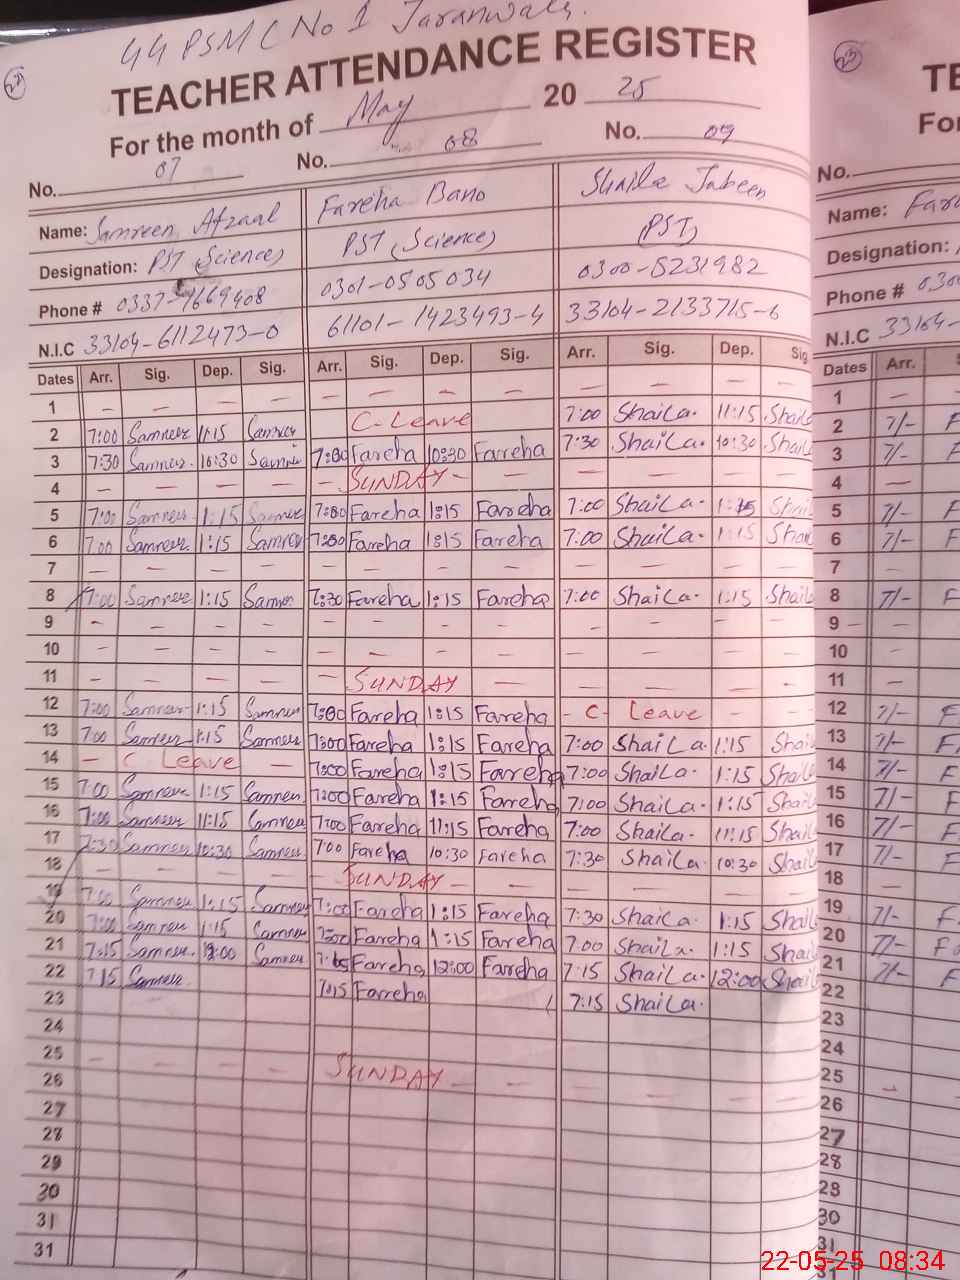 44 PSMC No 1 Jaranwala.
TEACHER ATTENDANCE REGISTER
For the month of May 20 25
No. 07 No. 08 No. 09
Name: Samreen Afzaal Fareha Bano Shaila Jabeen
Designation: PST (Science) PST (Science) (PST)
Phone # 0337-1669408 0301-0505034 0300-5231982
N.I.C 33104-6112473-0 61101-1423493-4 33104-2133715-6
Dates Arr. Sig. Dep. Sig. Arr. Sig. Dep. Sig. Arr. Sig. Dep. Sig
1 — — — — — — — — — — — —
2 7:00 Samreen 11:15 Samreen C-Leave 7:00 Shaila. 11:15 Shaila
3 7:30 Samreen 10:30 Samreen 7:00 Fareha 10:30 Fareha 7:30 Shaila. 10:30 Shaila
4 — — — — — SUNDAY — — — — — —
5 7:00 Samreen 1:15 Samreen 7:00 Fareha 1:15 Fareha 7:00 Shaila. 1:15 Shaila
6 7:00 Samreen 1:15 Samreen 7:00 Fareha 1:15 Fareha 7:00 Shaila. 1:15 Shaila
7 — — — — — — — — — — — —
8 7:00 Samreen 1:15 Samreen 7:00 Fareha 1:15 Fareha 7:00 Shaila. 1:15 Shaila
9 — — — — — — — — — — — —
10 — — — — — — — — — — — —
11 — — — — — SUNDAY — — — — —
12 7:00 Samreen 1:15 Samreen 7:00 Fareha 1:15 Fareha - C- Leave — —
13 7:00 Samreen 1:15 Samreen 7:00 Fareha 1:15 Fareha 7:00 Shaila. 1:15 Shaila
14 — C Leave — 7:00 Fareha 1:15 Fareha 7:00 Shaila. 1:15 Shaila
15 7:00 Samreen 1:15 Samreen 7:00 Fareha 1:15 Fareha 7:00 Shaila. 1:15 Shaila
16 7:00 Samreen 11:15 Samreen 7:00 Fareha 11:15 Fareha 7:00 Shaila. 11:15 Shaila
17 7:30 Samreen 10:30 Samreen 7:00 Fareha 10:30 Fareha 7:30 Shaila. 10:30 Shaila
18 — — — — SUNDAY — — — — — —
19 7:00 Samreen 1:15 Samreen 7:00 Fareha 1:15 Fareha 7:30 Shaila. 1:15 Shaila
20 7:00 Samreen 1:15 Samreen 7:00 Fareha 1:15 Fareha 7:00 Shaila. 1:15 Shaila
21 7:15 Samreen 12:00 Samreen 7:15 Fareha 12:00 Fareha 7:15 Shaila. 12:00 Shaila
22 7:15 Samreen 7:15 Fareha 7:15 Shaila.
23
24
25 — — — — SUNDAY — — — — — —
26
27
28
29
30
31
31
23
TE
For
No.
Name: Far
Designation:
Phone # 0300
N.I.C 33104-
Dates Arr.
1 —
2 7/- F
3 7/- F
4 —
5 7/- F
6 7/- F
7 —
8 7/- F
9 —
10 —
11 —
12 7/- F
13 7/- F
14 7/- F
15 7/- F
16 7/- F
17 7/- F
18 —
19 7/- F
20 7/- F
21 7/- F
22
23
24
25 —
26
27
28
28
30
31
31
22-05-25 08:34